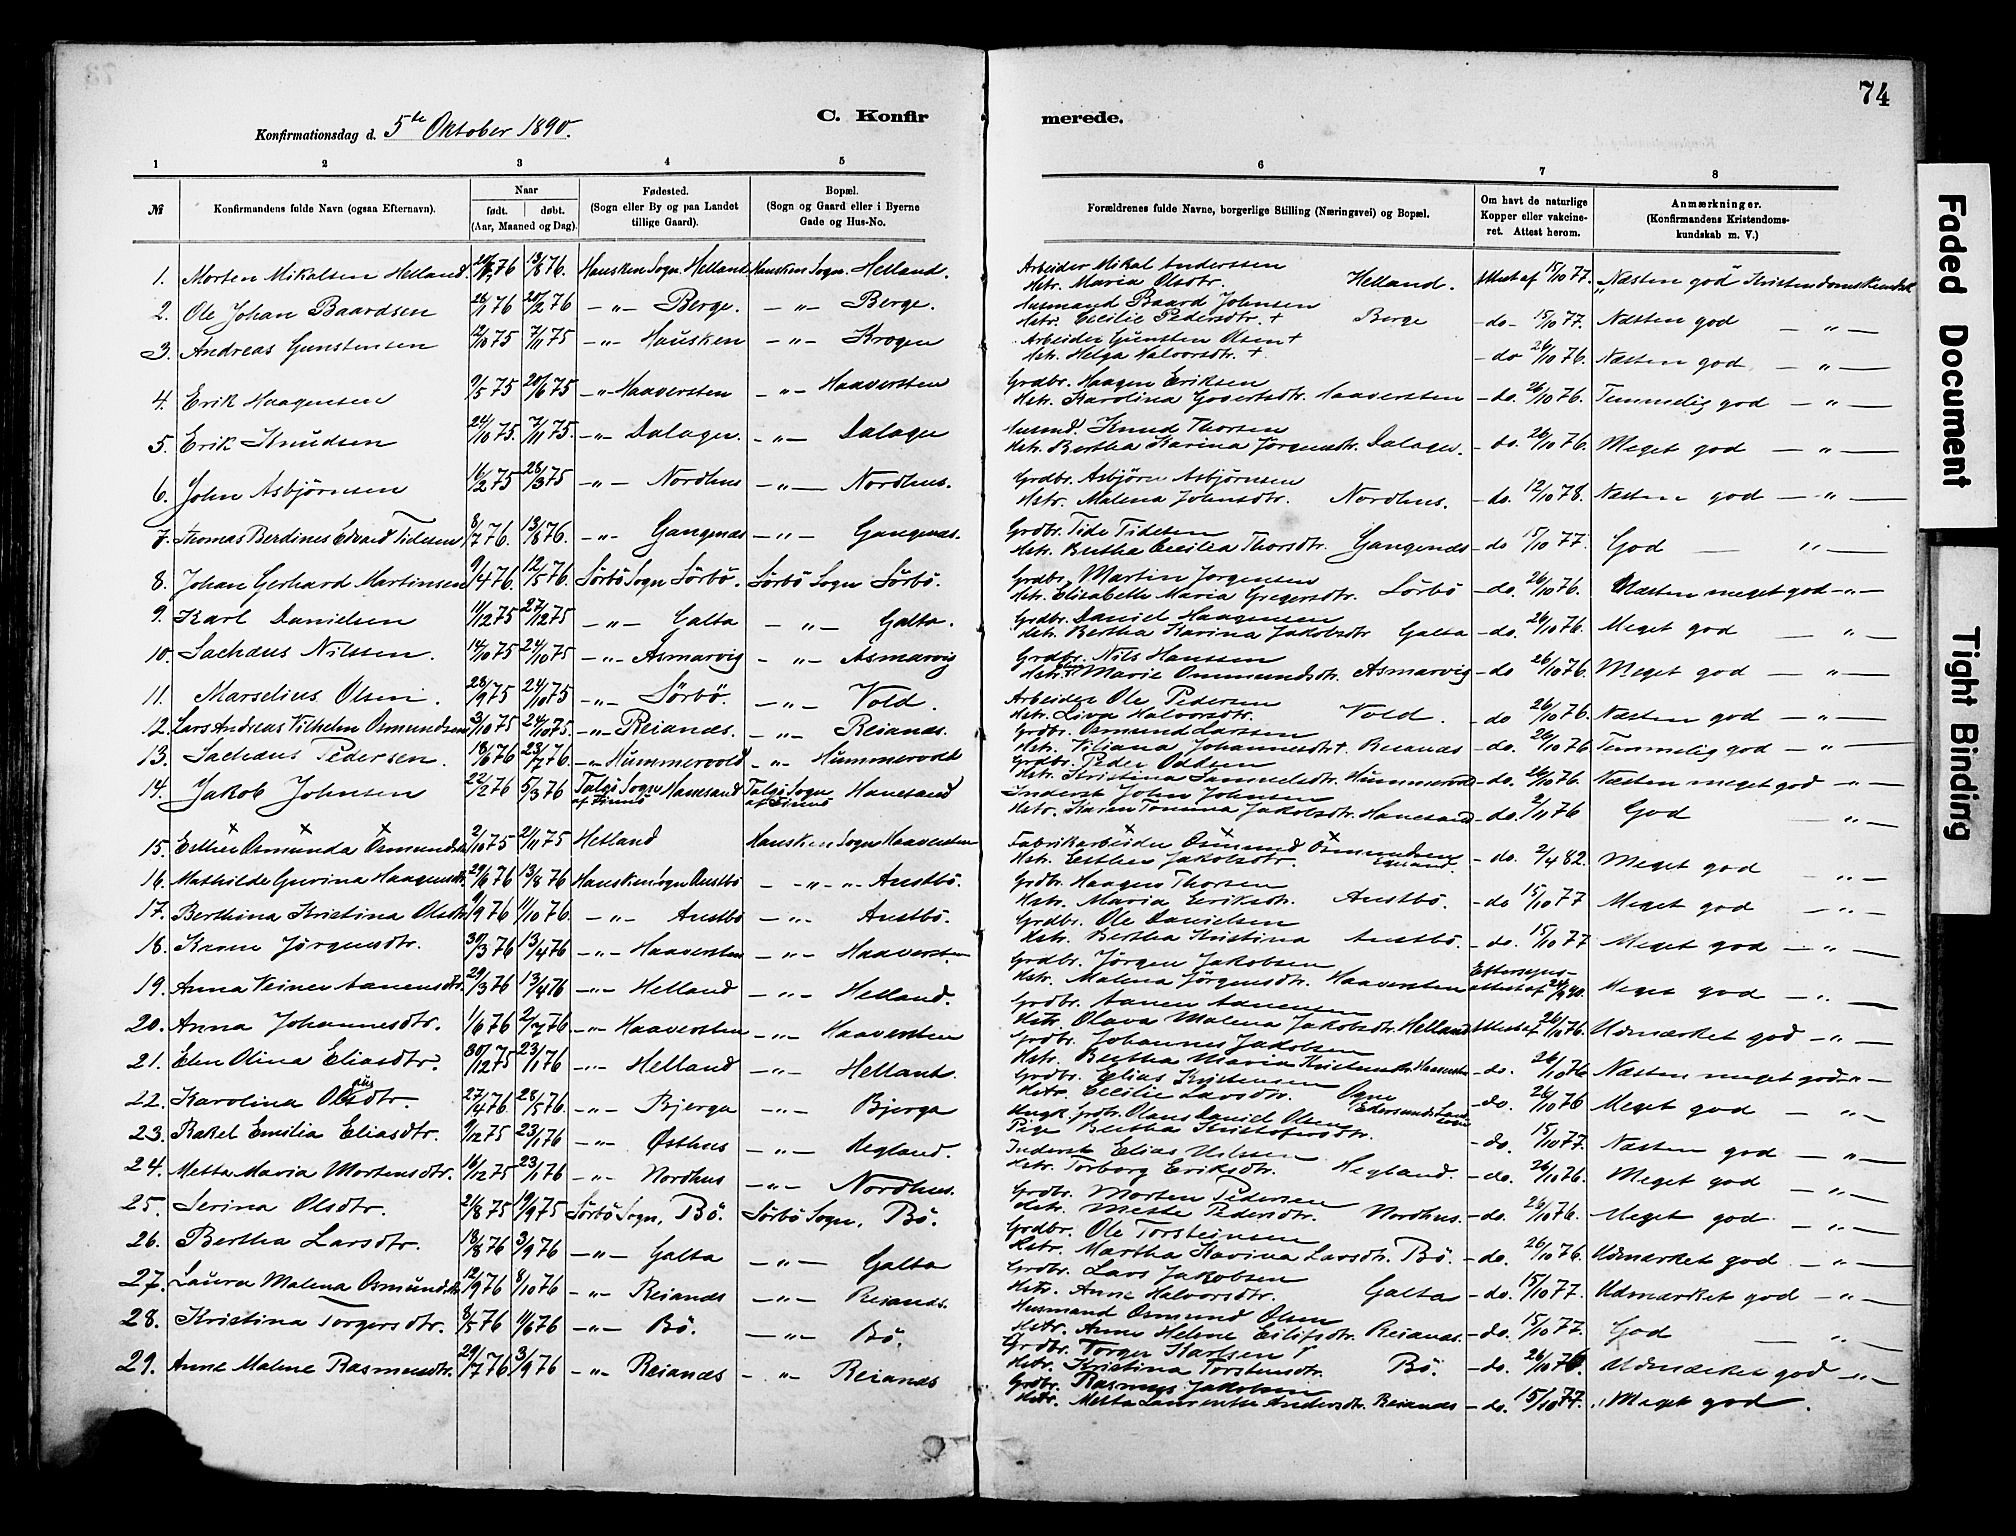 74
Konfirmationsdag d. 5te Oktober 1890.
C. Konfirmerede.
1 2 3 4 5 6 7 8
№ Konfirmandens fulde Navn (ogsaa Efternavn). Naar født. døbt. (Aar, Maaned og Dag). Fødested. (Sogn eller By og paa Landet tillige Gaard). Bopæl. (Sogn og Gaard eller i Byerne Gade og Hus-No. Forældrenes fulde Navne, borgerlige Stilling (Næringsvei) og Bopæl. Om havt de naturlige Kopper eller vakcineret. Attest herom. Anmærkninger. (Konfirmandens Kristendomskundskab m. V.)
1. Morten Mikalsen Helland 13/8 76. Hausken Sogn Helland Hausken Sogn. Helland. Arbeider Mikal Anderssen Hstr. Maria Olsdtr. Helland. Attest af 15/10 77. "Næsten god" Kristendomskundsk
2. Ole Johan Baardsen 26/1 76 20/2 76 -"- Berge. -"- Berge. Husmand Baard Johnsen Hstr. Cecilie Pedersdtr. + Berge -do- 15/10 77. Næsten god -"-
3. Andreas Gunstensen 12/10 75 7/11 75 -"- Hausken -"- Krogen Arbeider Gunsten Olsen + Hstr. Helga Halvorsdtr. +. -do 26/10 76. Næsten god -"-
4. Erik Haagensen 9/5 75 20/6 75 -"- Haaversten -"- Haaversten Grdbr. Haagen Eriksen Hstr. Karolina Govertsdtr. Haaversten -do. 26/10 76. Temmelig god -"-
5. Erik Knudsen 24/10 75. 7/11 75. -"- Dalager. -"- Dalager Husmd. Knud Thorsen Hstr. Bertha Karina Jørgensdtr. Dalager. -do. 26/10 76. Meget god -"-
6. John Asbjørnsen 16/2 75 28/3 75 -"- Nordhus -"- Nordhus. Grdbr. Asbjørn Asbjørnsen Hstr. Malena Johnsdtr. Nordhus. -do. 12/10 78. Næsten god -"-
7. Thomas Berdines Edvard Tidesen 8/7 76. 13/8 76. -"- Gangenæs -"- Gangenæs. Grdbr. Tide Tidesen Hstr. Bertha Cecilia Thorsdtr. Gangenæs -do 15/10 77. God -"-
8. Johan Gerhard Martinsen 9/4 76. 12/5 76. Sørbö Sogn Sørbö. Sörbö Sogn Sörbö. Grdbr. Martin Jørgensen Hstr. Elisabeth Maria Gregersdtr. Sörbö -do. 26/10 76. Næsten meget god -"-
9. Karl Danielsen 11/12 75 27/12 75 -"- Galta -"- Galta. Grdbr. Daniel Haagensen Hstr. Bertha Karina Jakobsdtr Galta -do. 26/10 76. Meget god -"-
10. Sachæus Nilssen. 14/10 75 24/10 75 -"- Asmarvig -"- Asmarvig Grdbr. Nils Hanssen Hstr. Marie Ommundsdtr. Asmarvig -do 26/10 76. Meget god -"-
11. Marselius Olsen. 28/9 75 24/10 75 -"- Sörbö. -"- Vold. Arbeider Ole Pedersen Hstr. Liva Halvorsdtr. Vold. -do 26/10 76. Næsten god -"-
12. Lars Andreas Vilhelm Osmundsen 3/10 75 24/10 75. -"- Reianæs. -"- Reianæs. Grdbr. Osmund Larssen Hstr. Viliana Johannesdtr + Reianæs -do. 26/10 76 Temmelig god -"-
13. Sachæus Pedersen. 18/6 76 23/7 76 -"- Hummervold -"- Hummervold Grdbr. Peder Hstr. Kristina Samuelsdtr. Hummervold -do. 26/10 76. Næsten meget god -"-
14. Jakob Johnsen 22/2 76 5/3 76 Talgö Sogn af Finnö Hanesand Talgö Sogn af Finnö Hanesand Inderst John Johnsen Hstr. Karen Tomina Jakobsdtr. Hanesand -do. 2/11 76 God -"-
15. Esther Osmunda Osmundsdtr 2/10 75 21/11 75 Hetland Hausken Sogn Haaversten Fabrikarbeider Osmund Osmundsen Hstr. Esther Jakobsdtr. -do. 2/4 82. Meget god -"-
16. Mathilde Gurina Haagensdtr. 29/6 76 13/8 76 Hausken Sogn Austbö -"- Austbö. Grdbr. Haagen Thorsen Hstr. Maria Eriksdtr. Austbö. -do 15/10 77 Meget god -"-
17. Berthina Kristina Olsdtr 9/9 76 11/10 76. -"- Austbö -"- Austbö. Grdbr. Ole Danielsen Hstr. Bertha Kristina Austbö. -do. 15/10 77 Meget god -"-
18. Karen Jørgensdtr. 30/3 76 13/4 76 -"- Haaversten -"- Haaversten Grdbr. Jørgen Jakobsen Hstr. Malena Jørgensdtr. Haaversten Eftersynsattest af 24/9 90. Meget god -"-
19. Anna Aanensdtr. 29/3 76 13/4 76 -"- Helland -"- Helland. Grdbr. Aanen Aanensen Hstr. Olava Malena Jakobsdtr. Helland Attest af 26/10 76. Udmærket god -"-
20. Anna Johannesdtr. 1/6 76 2/7 76 -"- Haaversten -"- Haaversten Grdbr. Johannes Jakobsen Hstr. Bertha Maria Kristensdtr. Haaversten -do. 26/10 76 Næsten meget god -"-
21. Elen Olina Eliasdtr. 30/12 75 23/1 76 -"- Helland -"- Helland. Grdbr. Elias Kristensen Hstr. Cecilie Larsdtr. -do. 26/10 76 Meget god -"-
22. Karolina Olausdtr. 27/4 76 28/5 76. -"- Bjerga -"- Bjerga Olaus Daniel Olsen Ogne Pige Bertha Kristofersdtr. -do. 15/10 77. Næsten god -"-
23. Rakel Emilia Eliasdtr. 9/12 75 23/1 76 -"- Østhus -"- Hegland. Inderst Elias Nilssen Hstr. Torborg Eriksdtr. Hegland. -do. 26/10 76. Meget god -"-
24. Metta Maria Mortensdtr. 16/12 75 23/1 76 -"- Nordhus -"- Nordhus. Grdbr. Morten Pedersen Hstr. Mette Pedersdtr. Nordhus. -do. 26/10 76. Meget god -"-
25. Serina Olsdtr. 21/8 75 19/9 75 Sörbö Sogn, Bö. Sörbö Sogn, Bö. Grdbr. Ole Torsteinsen Hstr. Martha Karina Larsdtr. Bö. -do. 26/10 76. Udmærket god -"-
26. Bertha Larsdtr. 18/8 76 3/9 76 -"- Galta -"- Galta Grdbr. Lars Jakobsen Hstr. Anne Halvorsdtr. Galta -do. 15/10 77. Udmærket god -"-
27. Laura Malena Osmundsdtr 12/9 76 8/10 76 -"- Reianæs -"- Reianæs. Husmand Osmund Olsen Hstr. Anne Helene Eilifsdtr. Reianæs. -do. 15/10 77. God -"-
28. Kristina Torgersdtr. 8/5 76 11/6 76 -"- Bö. -"- Bö. Grdbr. Torger Karlsen Hstr. Kristina Torstensdtr. Bö. -do. 26/10 76 Udmærket god -"-
29. Anne Malene Rasmusdtr. 29/7 76 3/9 76 -"- Reianæs -"- Reianæs Grdbr. Rasmus Jakobsen Hstr. Metta Laurentse Andersdtr. Reianæs -do. 15/10 77. Meget god.
Faded Document
Tight Binding